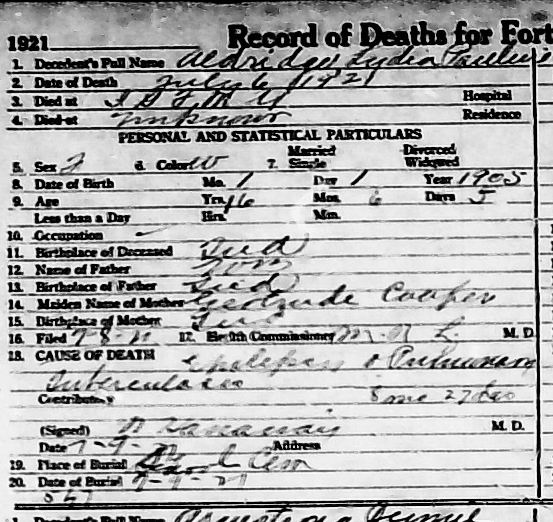 1921 Record of Deaths for Fort
1. Decedent's Full Name Aldridge, Lydia Pauline
2. Date of Death July 6 1921
3. Died at I S F M Y Hospital
4. Died at Unknown Residence
PERSONAL AND STATISTICAL PARTICULARS
Married Divorced
5. Sex F 6. Color W 7. Single Widowed
8. Date of Birth Mo. 1 Day 1 Year 1905
9. Age Yrs. 16 Mos. 6 Days 5
Less than a Day Hrs. Min.
10. Occupation
11. Birthplace of Deceased Ind
12. Name of Father Tom
13. Birthplace of Father Ind
14. Maiden Name of Mother Gertrude Cooper
15. Birthplace of Mother Ind
16. Filed 7-8-21 17. Health Commissioner M. D.
18. CAUSE OF DEATH Epilepsy & Pulmonary
Tuberculosis
Contributory 8 mo 27 das
(Signed) M. D.
Date 7-9-21 Address
19. Place of Burial School Cem
20. Date of Burial 7-9-21
1. Decedent's Full Name